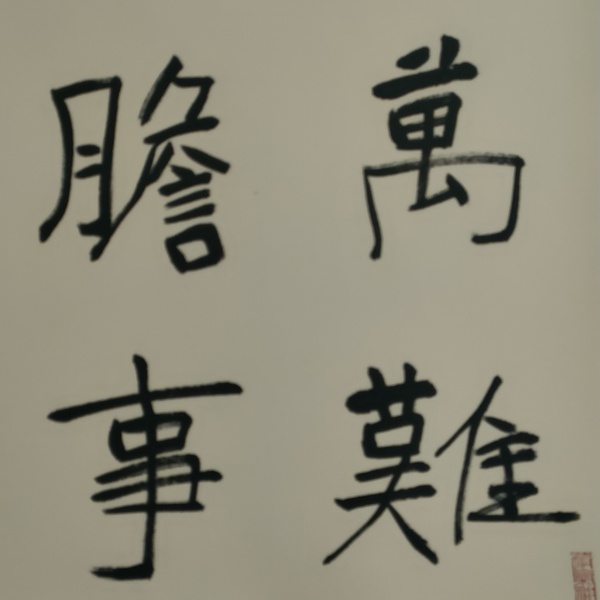 萬難
膽事